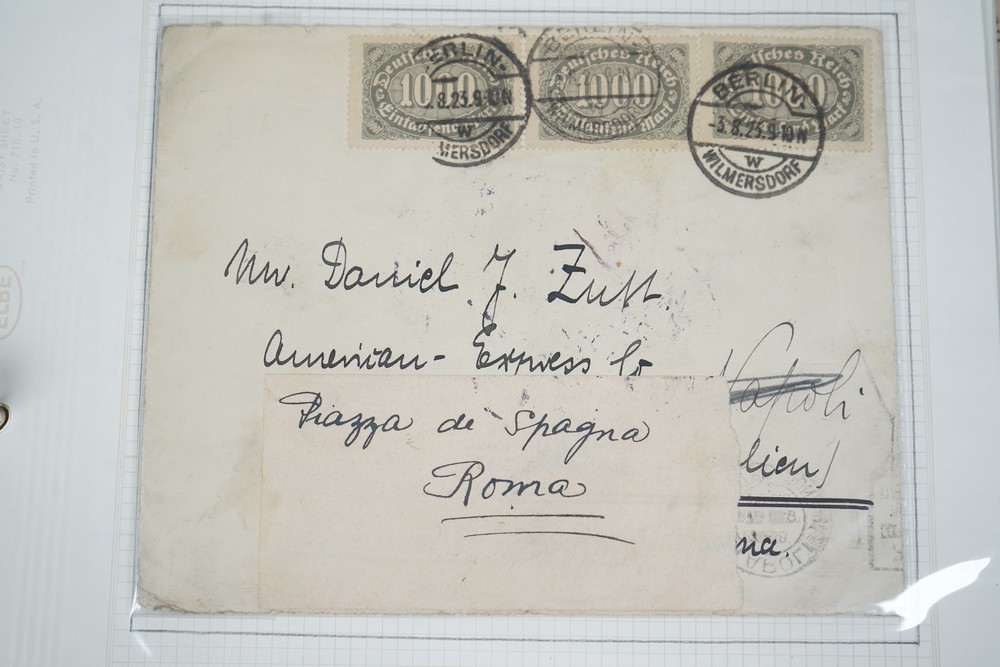 Deutsches Reich
1000
Eintausend Mark
Deutsches Reich
1000
Eintausend Mark
Deutsches Reich
1000
BERLIN-
.8.23.9-10N
W
WILMERSDORF
BERLIN-
-3.8.23.9-10N
W
WILMERSDORF
Mr. Daniel J. Zutt
American-Express Co
Napoli
Piazza de Spagna
lien)
Roma
nia.
Printed in U.S.A.
ELBE